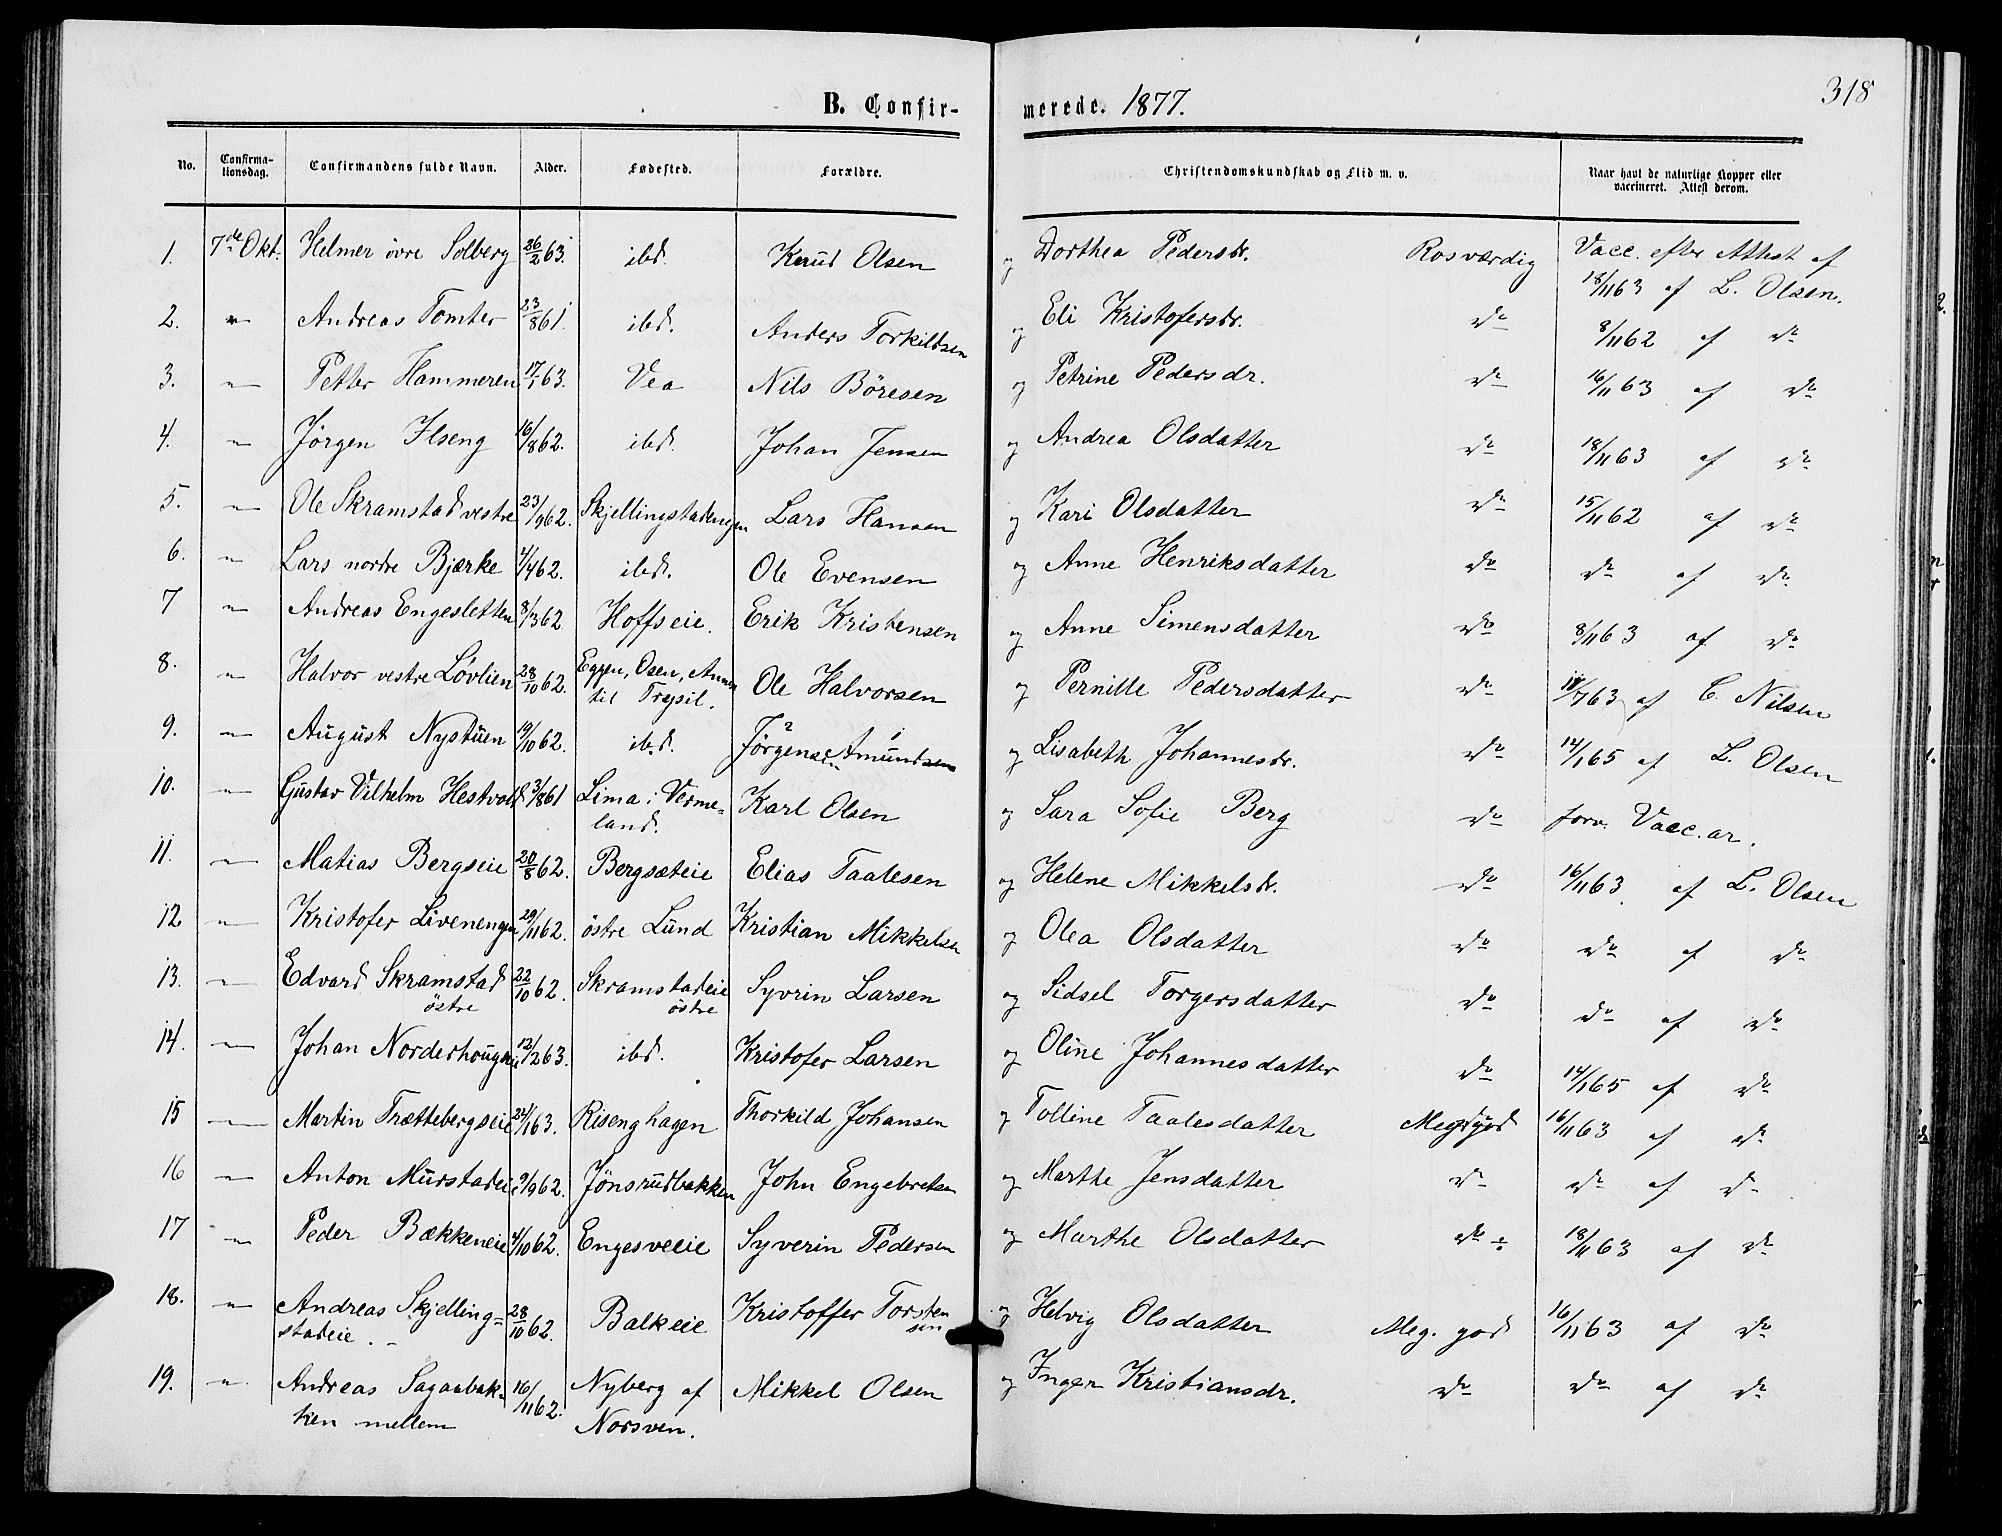 318
B. Confirmerede. 1877.
No. Confirmationsdag. Confirmandens fulde Navn. Alder. Fødested. Forældre. Christendomskundskab og Flid m. v. Naar havt de naturlige Kopper eller vaccineret. Attest derom.
1. 7de Okt. Helmer övre Solberg 26/2 63. ibd. Knud Olsen og Dorthea Pedersdr. Rosværdig Vacc. efter Attest af 18/11 63 af L. Olsen.
2. " Andreas Tomter 23/8 61. ibd. Anders Torkildsen og Eli Kristofersdr. do 8/11 62 af do
3. " Petter Hammeren 17/1 63. Vea Nils Böresen og Petrine Pedersdr. do 16/11 63 af do
4. " Jörgen Ilseng 16/8 62. ibd. Johan Jensen og Andrea Olsdatter do 18/11 63 af do
5. " Ole Skramstad vestre 23/9 62. Skjellingstadengen Lars Hansen og Kari Olsdatter do 15/11 62 af do
6. " Lars nordre Bjærke 4/4 62. ibd. Ole Evensen og Anne Henriksdatter do do af do
7 " Andreas Engesletten 8/3 62 Hoffseie. Erik Kristensen og Anne Simensdatter do 8/11 63 af do
8. " Halvor vestre Lövlien 28/10 62. Eggen, Osen, Annex til Trysil. Ole Halvorsen og Pernille Pedersdatter do 18/7 63 af C. Nilsen
9. " August Nystuen 19/10 62. ibd. Jörgensen Amundsen og Lisabeth Johannesdr. do 14/1 65 af L. Olsen
10. " Gustav Vilhelm Hestvold 3/8 61 Lima i Vermeland. Karl Olsen og Sara Sofie Berg do forv. Vacc.ar.
11. " Matias Bergseie 20/8 62. Bergsæteie Elias Taalesen og Helene Mikkelsdr. do 16/11 63. af L. Olsen
12 " Kristofer Livenengen 29/11 62. östre Lund Kristian Mikkelsen og Olea Olsdatter do do af do
13. " Edvard Skramstad östre 22/10 62. Skramstadeie östre Syvrin Larsen og Sidsel Torgersdatter do do af do
14. " Johan Norderhougen 12/2 63. ibd. Kristofer Larsen og Oline Johannesdatter do 14/1 65 af do
15 " Martin Trættebergseie 24/1 63. Risenghagen Thorkild Johansen og Tolline Taalesdatter Meg. god 16/11 63 af do
16 " Anton Murstadeie 9/9 62. Jönsrudbakken John Engebretsen og Marthe Jensdatter do do af do
17 " Peder Bækkeneie 4/10 62. Engesveeie Syverin Pedersen og Marthe Olsdatter do ÷ 18/11 63 af do
18. " Andreas Skjellingstadeie. 28/10 62. Balkeie Kristoffer Torstensen og Helvig Olsdatter Meg. god 16/11 63 af do
19. " Andreas Sagaabakken mellem 16/11 62. Nyberg af Norsven. Mikkel Olsen og Inger Kristiansdr. do do af do